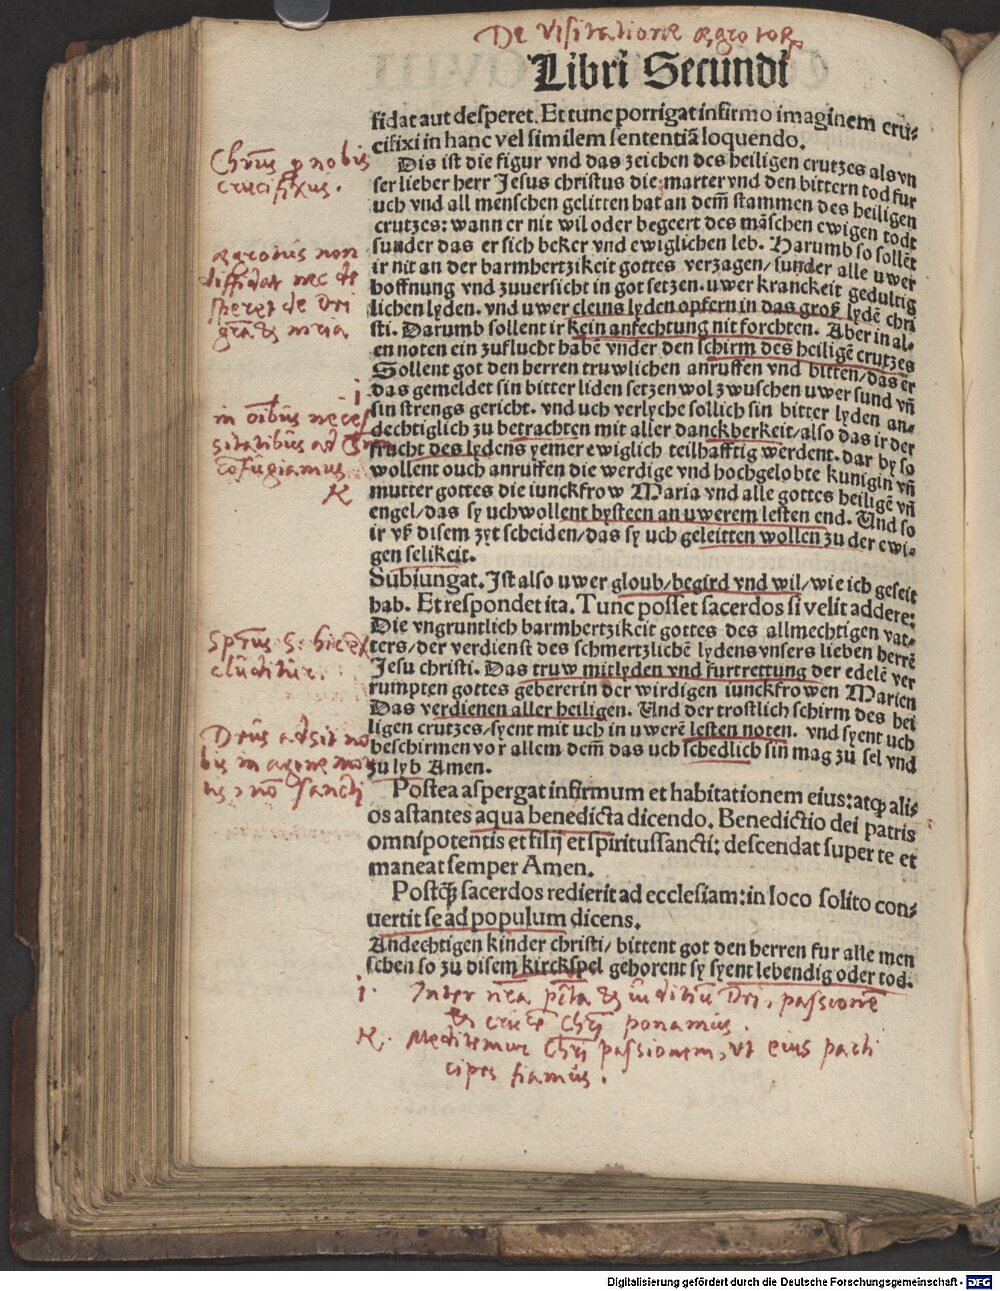 De visitatione ægrotoꝝ
Libri Secundi
fidat aut desperet. Et tunc porrigat infirmo imaginem cru⸗
cifixi in hanc vel similem sententiā loquendo.
Dis ist die figur vnd das zeichen des heiligen crutzes als vn
ser lieber herr Jesus christus die marter vnd den bittern tod fur
uch vnd all menschen gelitten hat an dem̄ stammen des heiligen
crutzes: wann er nit wil oder begeert des mā̄schen ewigen todt
sunder das er sich beker vnd ewiglichen leb. Darumb so sollēt
ir nit an der barmhertzikeit gottes verzagen/ sunder alle uwer
hoffnung vnd zuuersicht in got setzen. uwer kranckeit gedultig
lichen lyden. vnd uwer cleins lyden opfern in das groß lydē chri
sti. Darumb sollent ir kein anfechtung nit forchten. Aber in al⸗
en noten ein zuflucht habē vnder den schirm des heiligē crutzes
Sollent got den herren truwlichen anruffen vnd bitten/ das er
das gemeldet sin bitter liden setzen wol zwuschen uwer sund vn̄
sin strengs gericht. vnd uch verlyche sollich sin bitter lyden an⸗
dechtiglich zu betrachten mit aller danckberkeit/ also das ir der
frucht des lydens yemer ewiglich teilhafftig werdent. dar by so
wollent ouch anruffen die werdige vnd hochgelobte kunigin vn̄
mutter gottes die iunckfrow Maria vnd alle gottes heiligē vn̄
engel/ das sy uch wollent bysteen an uwerem lesten end. Und so
ir vß disem zyt scheiden/ das sy uch geleitten wollen zu der ewi⸗
gen selikeit.
Subiungat. Ist also uwer gloub/ begird vnd wil/ wie ich geseit
hab. Et respondet ita. Tunc posset sacerdos si velit addere:
Die vngruntlich barmhertzikeit gottes des allmechtigen vat⸗
ters/ der verdienst des schmertzlichē lydens vnsers lieben herrē
Jesu christi. Das truw mitlyden vnd furtrettung der edelē ver
rumpten gottes gebererin der wirdigen iunckfrowen Marien
Das verdienen aller heiligen. Und der trostlich schirm des hei
ligen crutzes/ syent mit uch in uwerē lesten noten. vnd syent uch
beschirmen vor allem dem̄ das uch schedlich sin̄ mag zu sel vnd
zu lyb Amen.
Postea aspergat infirmum et habitationem eius: atqꝫ ali⸗
os astantes aqua benedicta dicendo. Benedictio dei patris
omnipotentis et filij et spiritussancti: descendat super te et
maneat semper Amen.
Postqꝫ sacerdos redierit ad ecclesiam: in loco solito con⸗
uertit se ad populum dicens.
Andechtigen kinder christi/ bittent got den herren fur alle men
schen so zu disem kirckspel gehorent sy syent lebendig oder tod.
Chr̄us ꝓ nobis
crucifixus.
ægrotus non
diffidat nec de
speret de Dei
gr̄a & m̄ia
i
in oībus neces
sitatibus ad
cōfugiamus
K
Deus adsit no
bis in agone
sancti
i. Inter n̄ra pctā & iuditiū Dei, passionē
& crucē Chr̄i ponamus.
K. Meditemur Chr̄i passionem, ut eius parti
cipes fiamus.
Digitalisierung gefördert durch die Deutsche Forschungsgemeinschaft - DFG